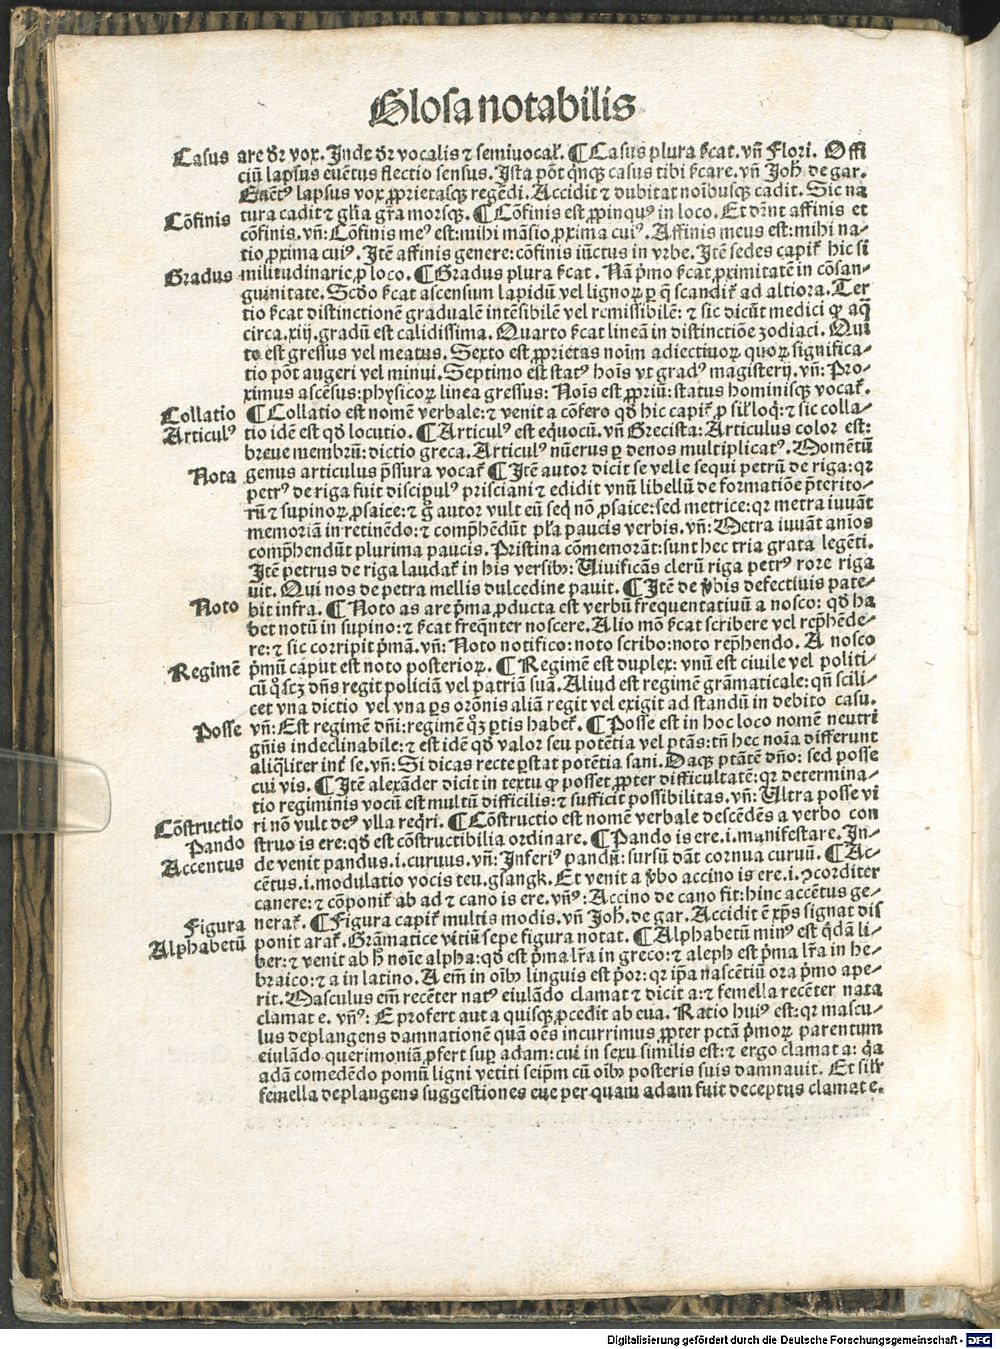 Glosa notabilis
Casus are dr̄ vox. Inde dr̄ vocalis ⁊ semiuocaƚ. ¶ Casus plura ſ̄cat. vñ Flori. Offi
ciū lapsus euētus flectio sensus. Ista pōt q̇nqꝫ casus tibi ſ̄care. vñ Joħ. de gar.
Euēt⁹ lapsus vox ꝓprietasqꝫ regēdi. Accidit ⁊ dubitat noībusqꝫ cadit. Sic na
Cōfinis tura cadit ⁊ gƚia gr̄a morsqꝫ. ¶ Cōfinis est ꝓpinqu⁹ in loco. Et dr̄nt affinis et
cōfinis. vñ: Cōfinis me⁹ est: mihi māsio ꝓxima cui⁹. Affinis meus est: mihi na-
tio ꝓxima cui⁹. Itē affinis genere: cōfinis iūctus in vrbe. Itē sedes capiť hic si
Gradus militudinarie ꝓ loco. ¶ Gradus plura ſ̄cat. Nā p̄mo ſ̄cat ꝓximitatē in cōsan-
guinitate. Scd̄o ſ̄cat ascensum lapidū vel lignoꝝ ꝑ q̄ scandiť ad altiora. Ter
tio ſ̄cat distinctionē gradualē intēsibilē vel remissibilē: ⁊ sic dicūt medici ꝙ aq̄
circa. xiij. gradū est calidissima. Quarto ſ̄cat lineā in distinctiōe zodiaci. Qui
to est gressus vel meatus. Sexto est ꝓprietas noīm adiectiuoꝝ quoꝝ significa-
tio pōt augeri vel minui. Septimo est stat⁹ hoīs vt grad⁹ magisterij. vñ: Pro-
ximus ascēsus: physicoꝝ linea gressus: Noīs est ꝓpriū: status hominisqꝫ vocať.
Collatio ¶ Collatio est nomē verbale: ⁊ venit a cōfero qd̄ hic capiť ꝓ siƚ loq̄: ⁊ sic colla-
Articul⁹ tio idē est qd̄ locutio. ¶ Articul⁹ est equocū. vñ Grecista: Articulus color est:
breue membrū: dictio greca. Articul⁹ nūerus ꝑ denos multiplicat⁹. Momētū
Nota genus articulus p̄ssura vocať ¶ Itē autor dicit se velle sequi petrū de riga: qꝛ
petr⁹ de riga fuit discipul⁹ prisciani ⁊ edidit vnū libellū de formatiōe p̄terito-
rū ⁊ supinoꝝ ꝓsaice: ⁊ g̊ autor vult eū seq̄ nō ꝓsaice: sed metrice: qꝛ metra iuuāt
memoriā in retinēdo: ⁊ comp̄hēdūt pƚa paucis verbis. vñ: Metra iuuāt anīos
comp̄hendūt plurima paucis. Pristina cōmemorāt: sunt hec tria grata legēti.
Itē petrus de riga laudať in his versibꝫ: Viuificās clerū riga petr⁹ rore riga
uit. Qui nos de petra mellis dulcedine pauit. ¶ Itē de v̄bis defectiuis pate-
Noto bit infra. ¶ Noto as are p̄ma ꝓducta est verbū frequentatiuū a nosco: qd̄ ha
bet notū in supino: ⁊ ſ̄cat freq̄nter noscere. Alio mō ſ̄cat scribere vel rep̄hēde-
re: ⁊ sic corripit p̄mā. vñ: Noto notifico: noto scribo: noto rep̄hendo. A nosco
Regimē p̄mū caput est noto posterioꝝ. ¶ Regimē est duplex: vnū est ciuile vel politi-
cū q̊ scꝫ dñs regit policiā vel patriā suā. Aliud est regimē grāmaticale: qñ scili-
cet vna dictio vel vna ꝑs orōnis aliā regit vel exigit ad standū in debito casu.
Posse vñ: Est regimē dñi: regimē q̊ꝫ ꝑtis habeť. ¶ Posse est in hoc loco nomē neutri
gñis indeclinabile: ⁊ est idē qd̄ valor seu potētia vel ptās: tñ hec noīa differunt
aliq̄liter int̄ se. vñ: Si dicas recte ꝑstat potētia sani. Daqꝫ ptātē dño: sed posse
cui vis. ¶ Itē alexāder dicit in textu ꝙ posset ꝓpter difficultatē: qꝛ determina-
tio regiminis vocū est multū difficilis: ⁊ sufficit possibilitas. vñ: Ultra posse vi
Cōstructio ri nō vult de⁹ vlla req̄ri. ¶ Cōstructio est nomē verbale descēdēs a verbo con
Pando struo is ere: qd̄ est cōstructibilia ordinare. ¶ Pando is ere .i. manifestare. In-
Accentus de venit pandus .i. curuus. vñ: Inferi⁹ pandū: sursū dāt cornua curuū. ¶ Ac-
cētus .i. modulatio vocis teu. gsangk. Et venit a v̄bo accino is ere .i. ꝯcorditer
canere: ⁊ cōponiť ab ad ⁊ cano is ere. vñ⁹: Accino de cano fit: hinc accētus ge-
Figura nerať. ¶ Figura capiť multis modis. vñ Joħ. de gar. Accidit ē xp̄s signat dis
Alphabetū ponit araƚ. Grāmatice vitiū sepe figura notat. ¶ Alphabetū min⁹ est q̇dā li-
ber: ⁊ venit ab ħ noīe alpha: qd̄ est p̄ma lr̄a in greco: ⁊ aleph est p̄ma lr̄a in he-
braico: ⁊ a in latino. A em̄ in oībꝫ linguis est p̄or: qꝛ ip̄a nascētiū ora p̄mo ape-
rit. Masculus em̄ recēter nat⁹ eiulādo clamat ⁊ dicit a: ⁊ femella recēter nata
clamat e. vñ⁹: E profert aut a quisqꝫ ꝓcedit ab eua. Ratio hui⁹ est: qꝛ mascu-
lus deplangens damnationē quā oēs incurrimus ꝓpter pctā p̄moꝝ parentum
eiulādo querimoniā ꝓfert suꝑ adam: cui in sexu similis est: ⁊ ergo clamat a: q̄a
adā comedēdo pomū ligni vetiti seip̄m cū oībꝫ posteris suis damnauit. Et siƚr
femella deplangens suggestiones eue per quam adam fuit deceptus clamat e.
Digitalisierung gefördert durch die Deutsche Forschungsgemeinschaft - DFG